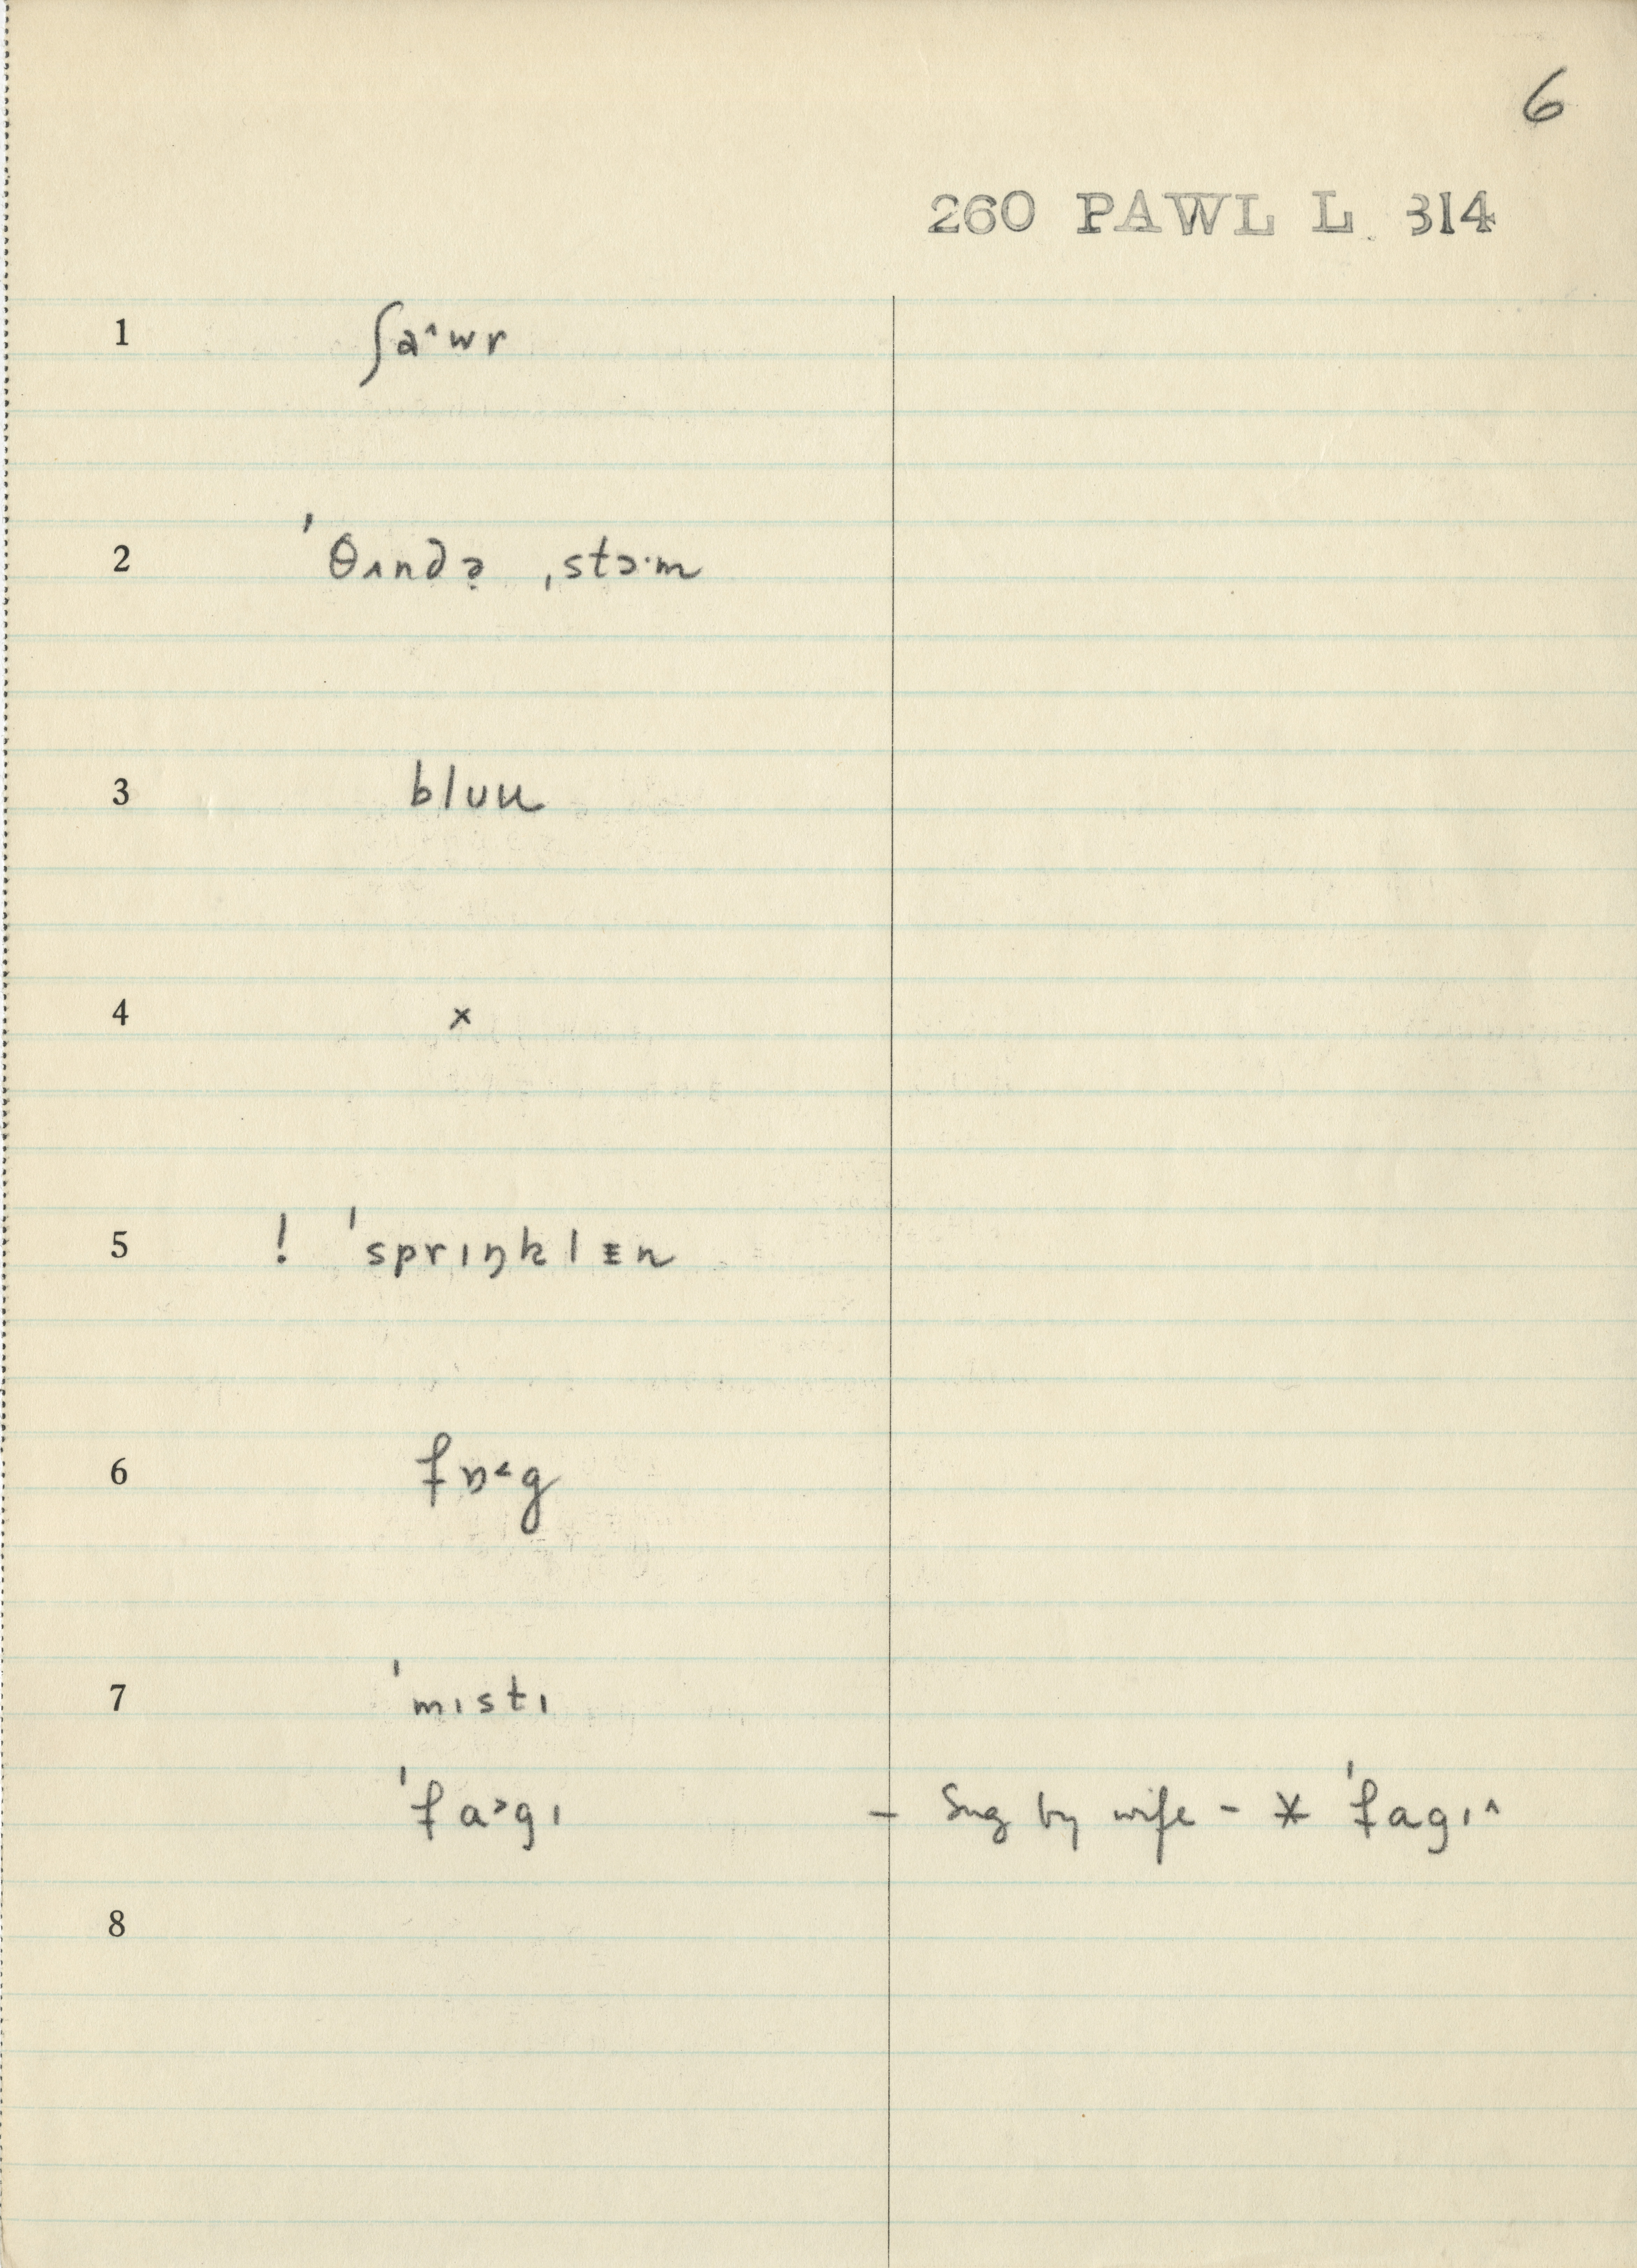 6
260 PAWL L 314
1 ʃa˄wr
2 ˈθʌndə̣ ˌstɔ·m
3 bluu
4 ×
5 ! ˈsprɪŋklɪ̵n
6 fɒ˂g
7 ˈmɪstɪ
ˈfa˃gɪ – Sug by wife – * ˈfagɪ˄
8